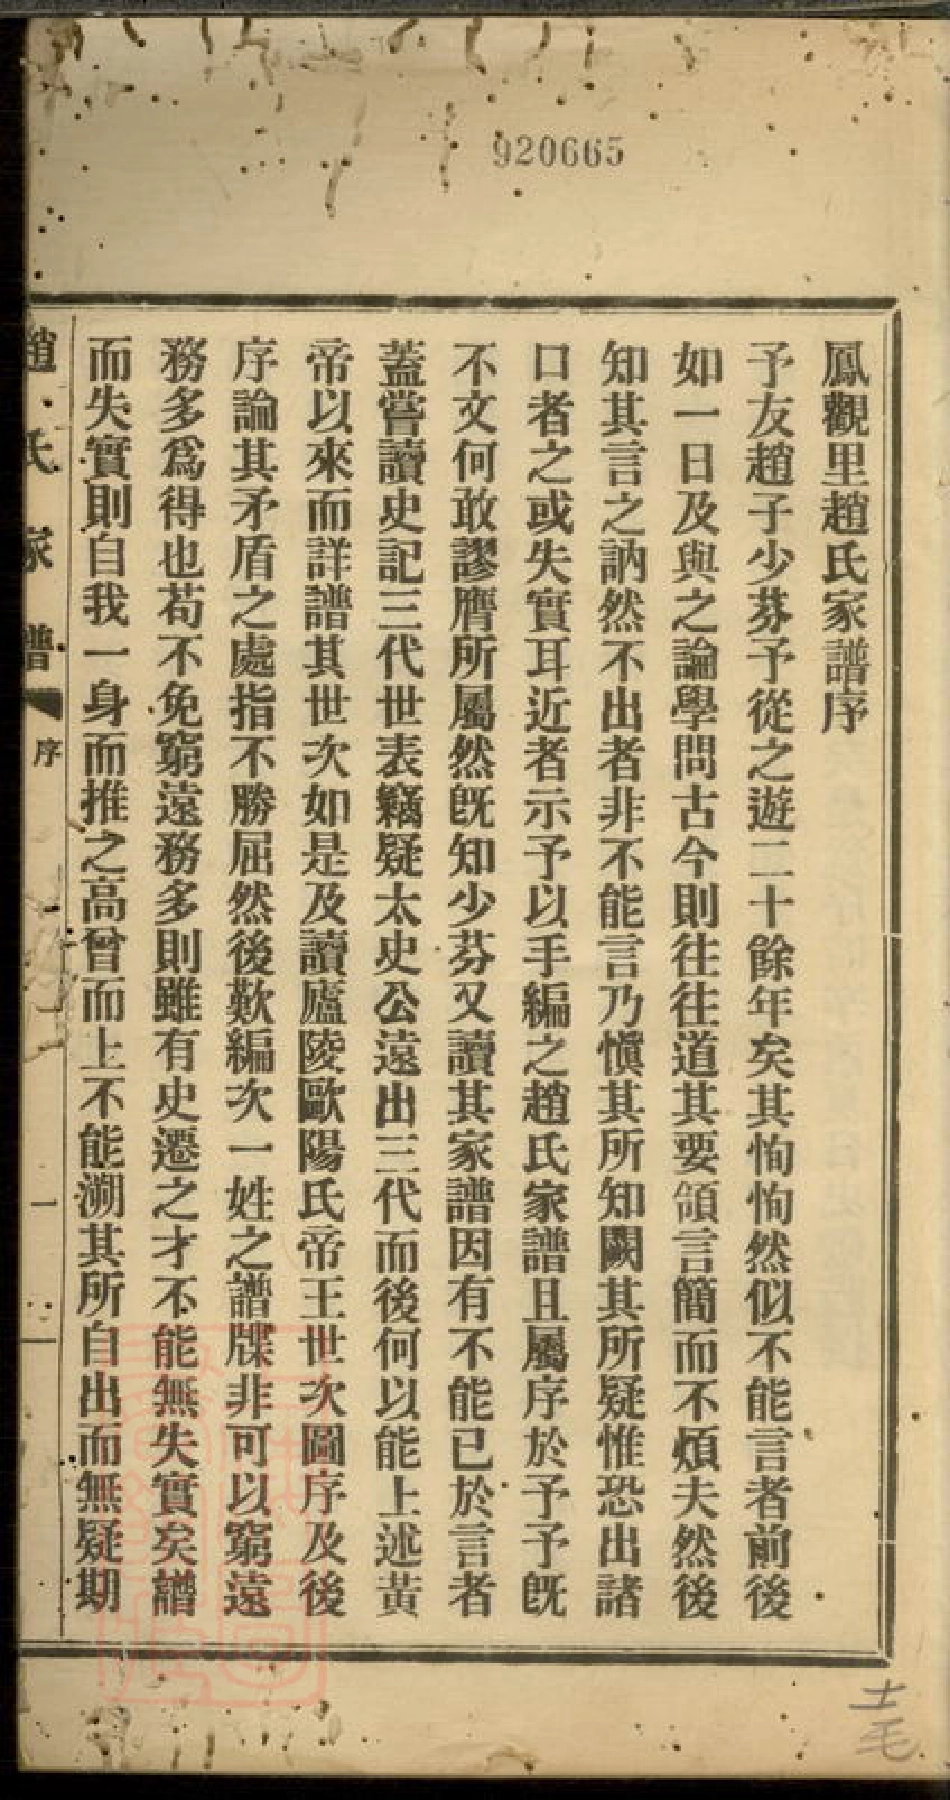 920665
鳳觀里趙氏家譜序
予友趙子少芬予從之遊二十餘年矣其恂恂然似不能言者前後
如一日及與之論學問古今則往往道其要領言簡而不煩夫然後
知其言之訥然不出者非不能言乃愼其所知闕其所疑惟恐出諸
口者之或失實耳近者示予以手編之趙氏家譜且屬序於予予旣
不文何敢謬膺所屬然旣知少芬又讀其家譜因有不能已於言者
蓋嘗讀史記三代世表竊疑太史公遠出三代而後何以能上述黃
帝以來而詳譜其世次如是及讀廬陵歐陽氏帝王世次圖序及後
序論其矛盾之處指不勝屈然後歎編次一姓之譜牒非可以窮遠
務多爲得也苟不免窮遠務多則雖有史遷之才不能無失實矣譜
而失實則自我一身而推之高曾而上不能溯其所自出而無疑期
趙氏家譜
序
一